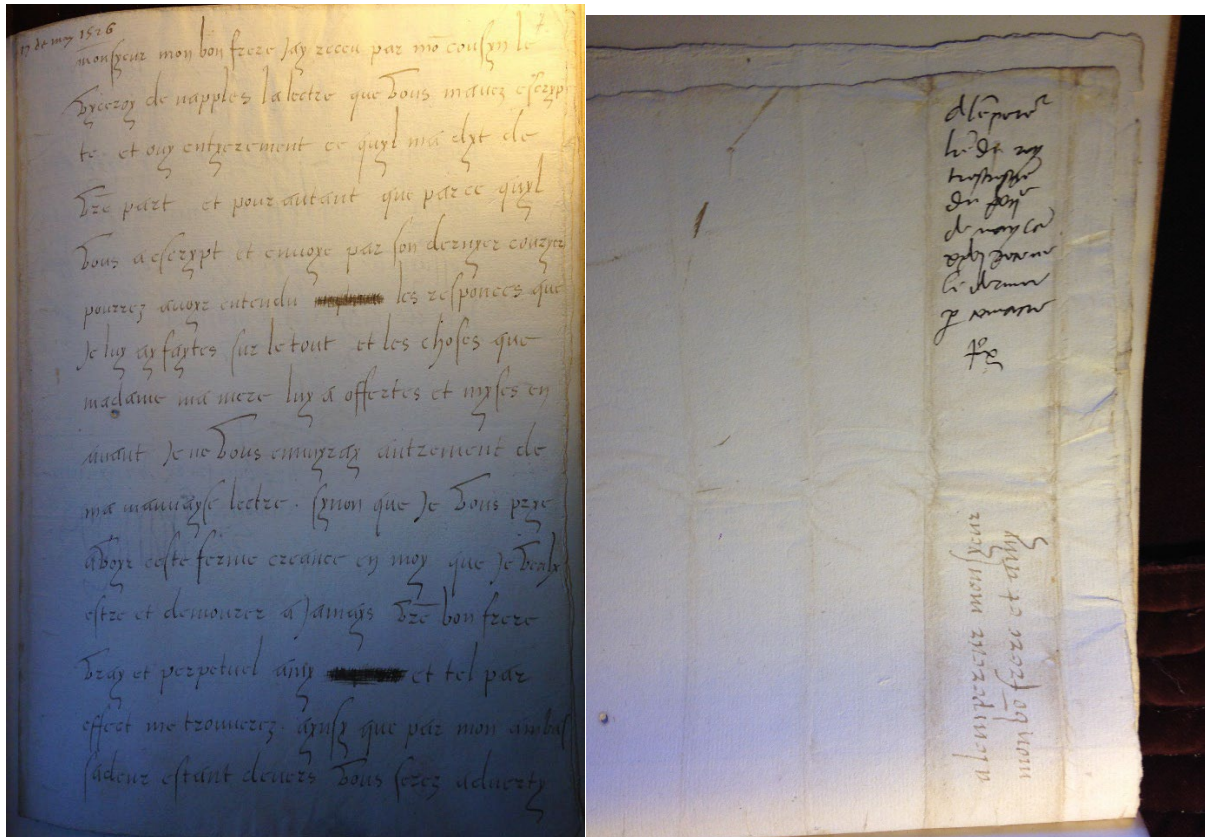 17 de may 1526
monsyeur mon bon frere Jay receu par mō cousyn le
vyceroy de napples la lectre que vous mavez escryp
te et ouy entyerement ce quyl ma dyt de
vr̄e part et pour autant que par ce quyl
vous a escrypt et envoye par son dernyer couryer
pourrez avoyr entendu les responces que
Je luy ay faytes sur le tout et les choses que
madame ma mere luy a offertes et myses en
avant Je ne vous ennuyray autrement de
ma mauvayse lectre. synon que Je vous prye
avoyr ceste ferme creance en moy que Je veulx
estre et demourer a Jamays vr̄e bon frere
vray et perpetuel amy et tel par
effect me trouverez. aynsy que par mon ambas
sadeur estant devers vous serez adverty
du roy
le dernier
a lempereur monsyeur
mon bō frere et amy